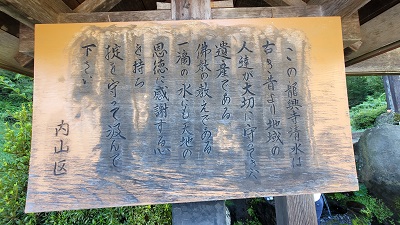 この龍興寺清水は
古き昔より地域の
人達が大切に守って来た
遺産である
佛教の教えである
一滴の水にも天地の
恩徳に感謝する念
を持ち
掟を守って汲んで
下さい
内山区